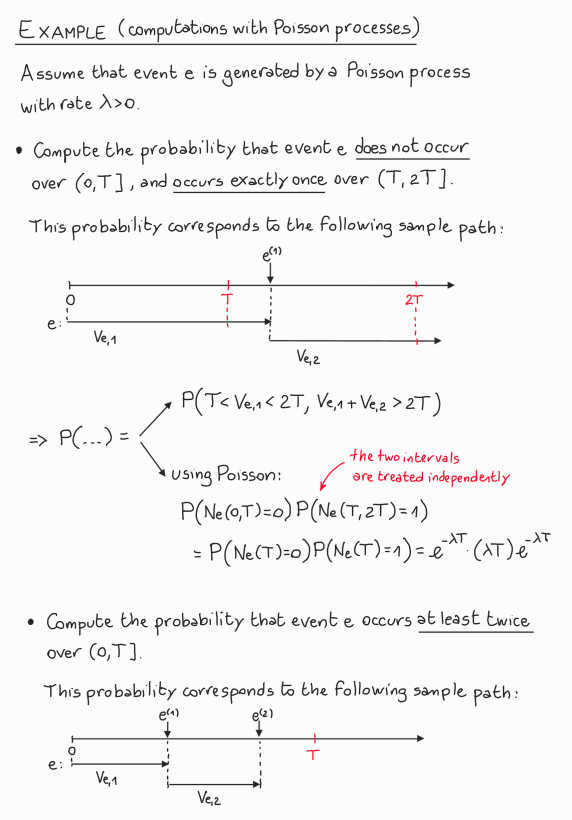 EXAMPLE (computations with Poisson processes)
Assume that event e is generated by a Poisson process
with rate λ>0.
• Compute the probability that event e does not occur
over (0,T], and occurs exactly once over (T,2T].
This probability corresponds to the following sample path:
e⁽¹⁾
0 T 2T
e:
Ve,1
Ve,2
P(T< Ve,1 < 2T, Ve,1 + Ve,2 > 2T)
=> P(...) =
using Poisson:
the two intervals
are treated independently
P(Ne(0,T)=0) P(Ne(T,2T)=1)
= P(Ne(T)=0)P(Ne(T)=1) = e^-λT · (λT) e^-λT
• Compute the probability that event e occurs at least twice
over (0,T].
This probability corresponds to the following sample path:
e⁽¹⁾ e⁽²⁾
0 T
e:
Ve,1
Ve,2